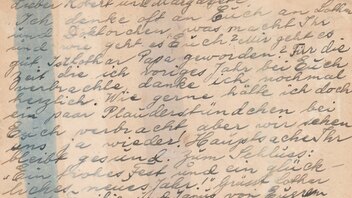 Lieber Robert und Margarete!
Ich denke oft an Euch an Lothar
und Doktorchen, was macht Ihr
und wie geht es Euch? wir geht es
gut. Ist Lothar Papa geworden? Für die
Zeit die ich voriges Jahr bei Euch
verbrachte danke ich nochmal
herzlich. Wie gerne hätte ich doch
ein paar Plauderstündchen bei
Euch verbracht aber wir sehen
uns ja wieder! Hauptsache Ihr
bleibt gesund. Zum Schluss:
"Ein frohes Fest und ein glück-
liches neues Jahr!" Grüsst
von Eurem